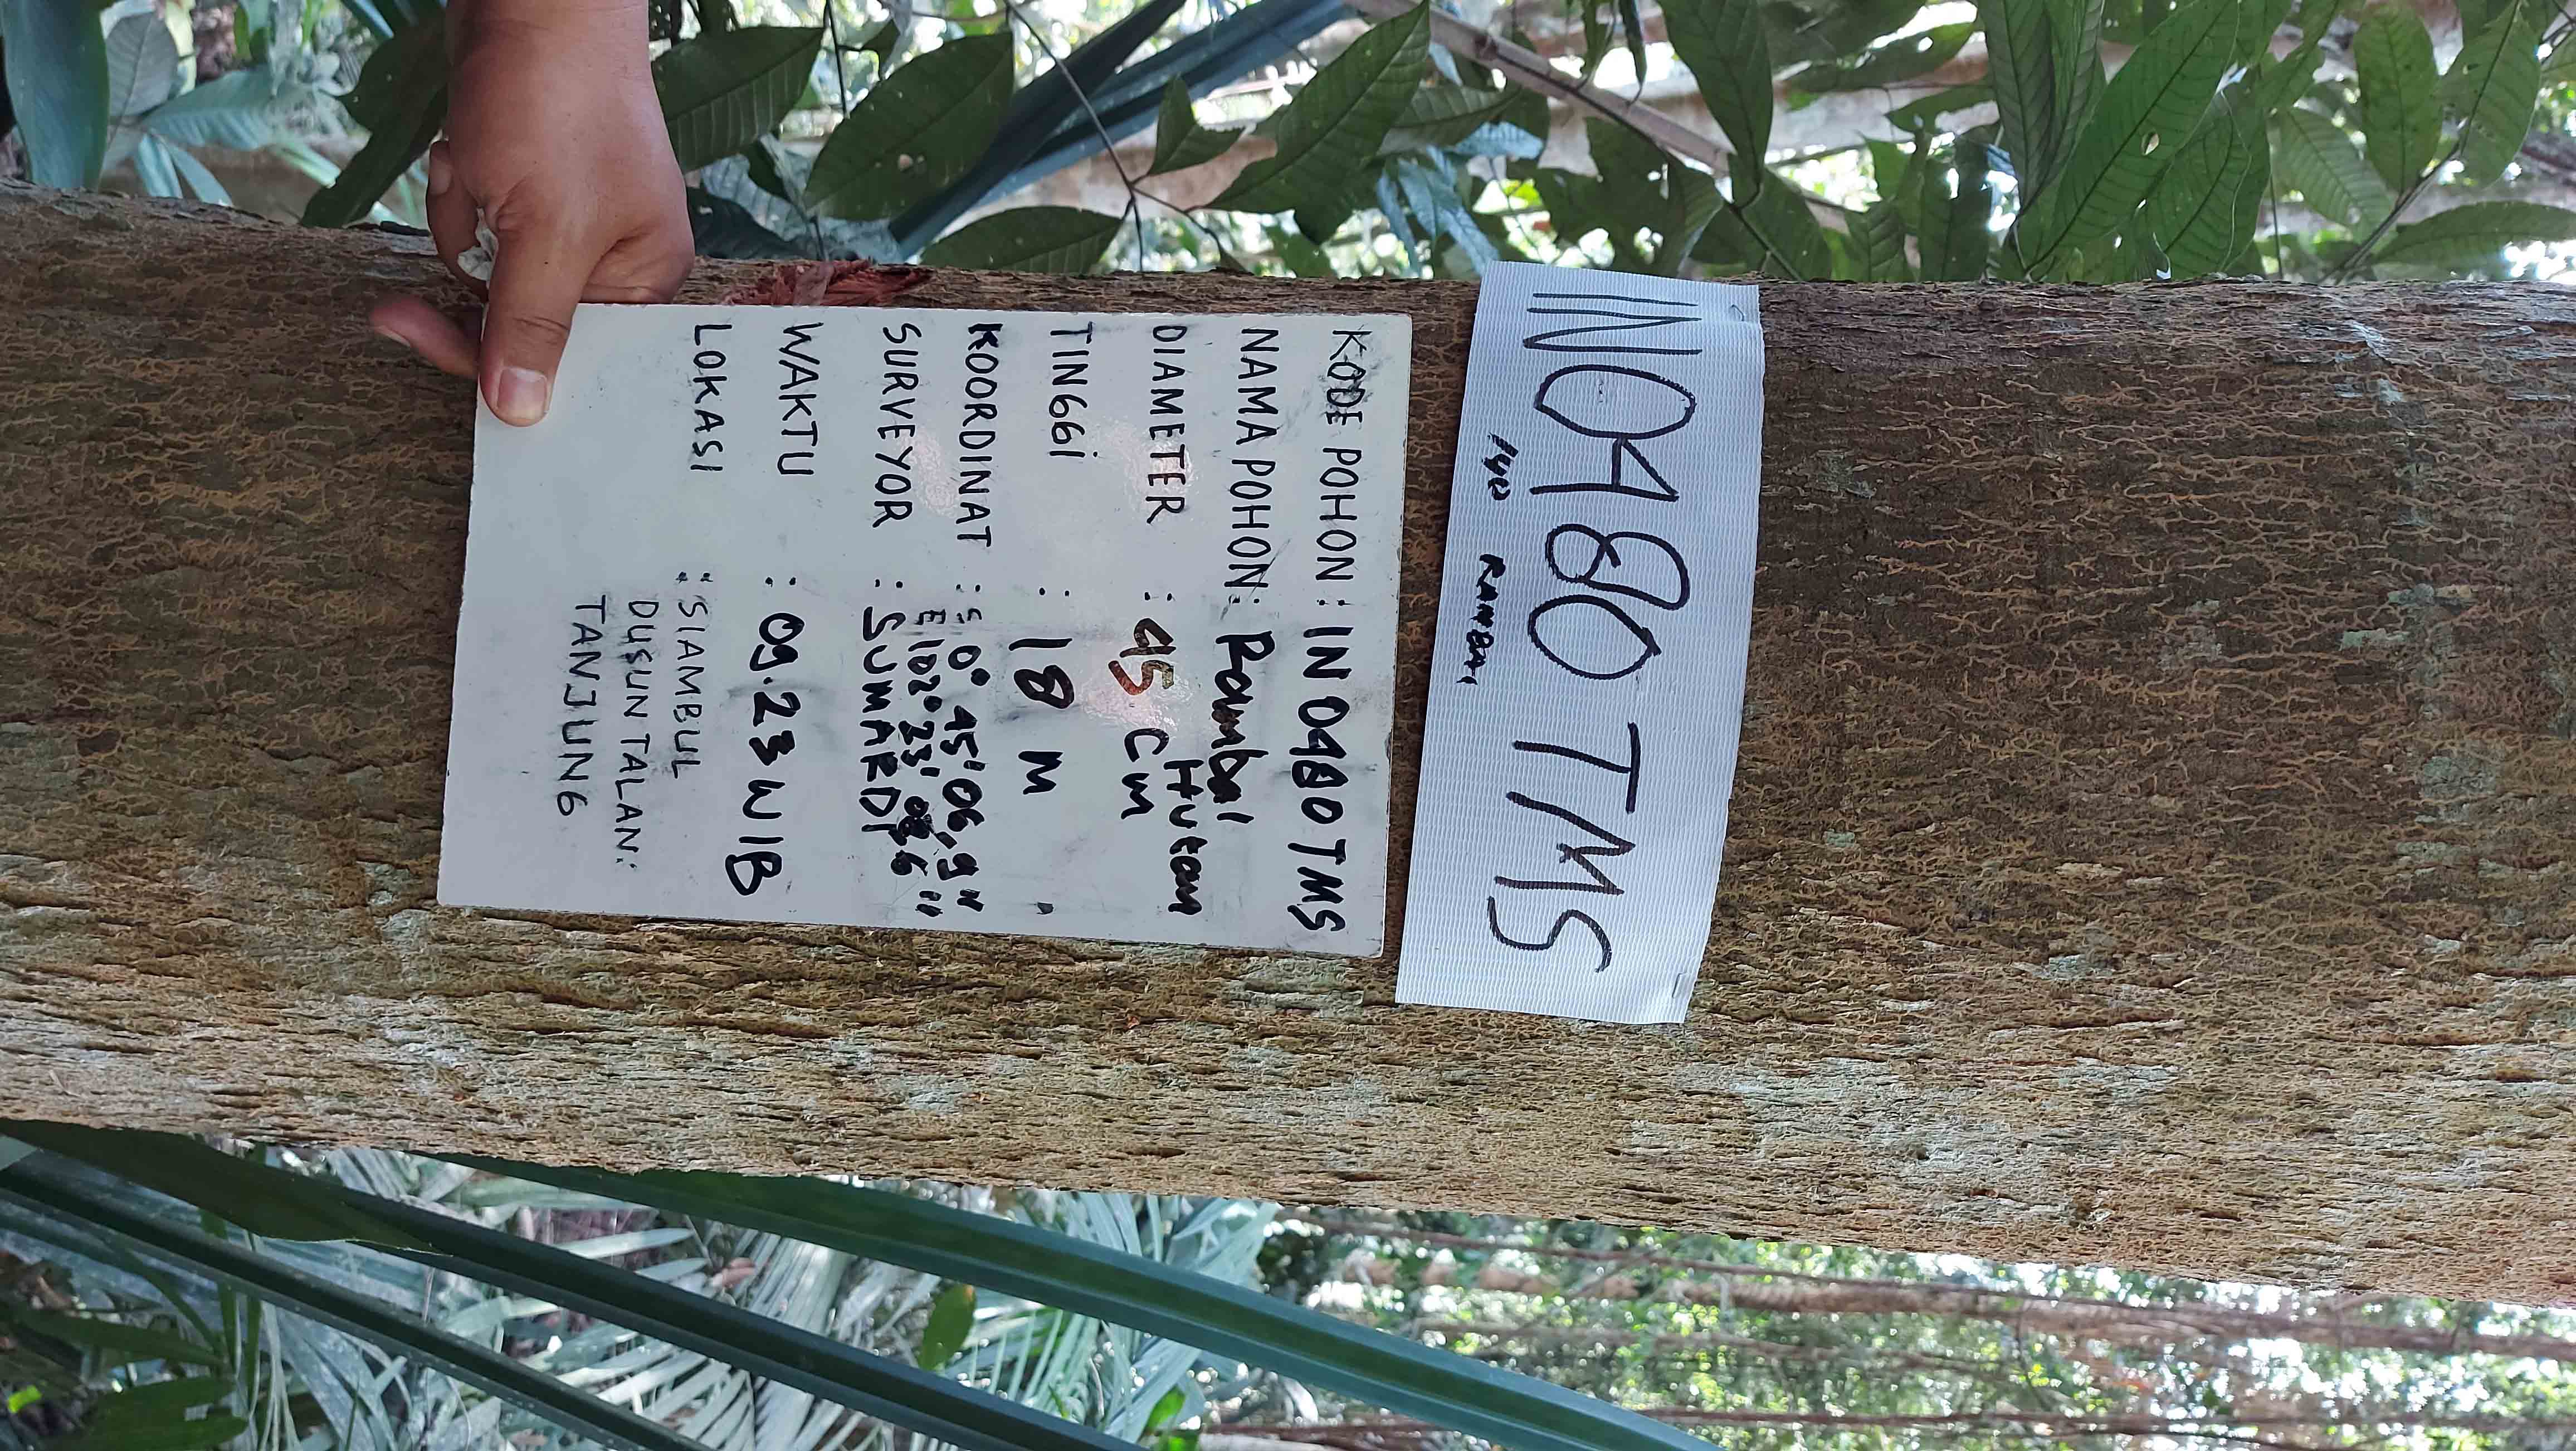 IN0480 TMS
140 RAMBAI
KODE POHON : IN 0480 TMS
NAMA POHON : Rambai
Hutan
DIAMETER : 45 Cm
TINGGI : 18 M
KOORDINAT : S 0° 45' 06,9"
E 102° 23' 6"
SURVEYOR : SUMARDI
WAKTU : 09.23 WIB
LOKASI : SIAMBUL
DUSUN TALAN:
TANJUNG